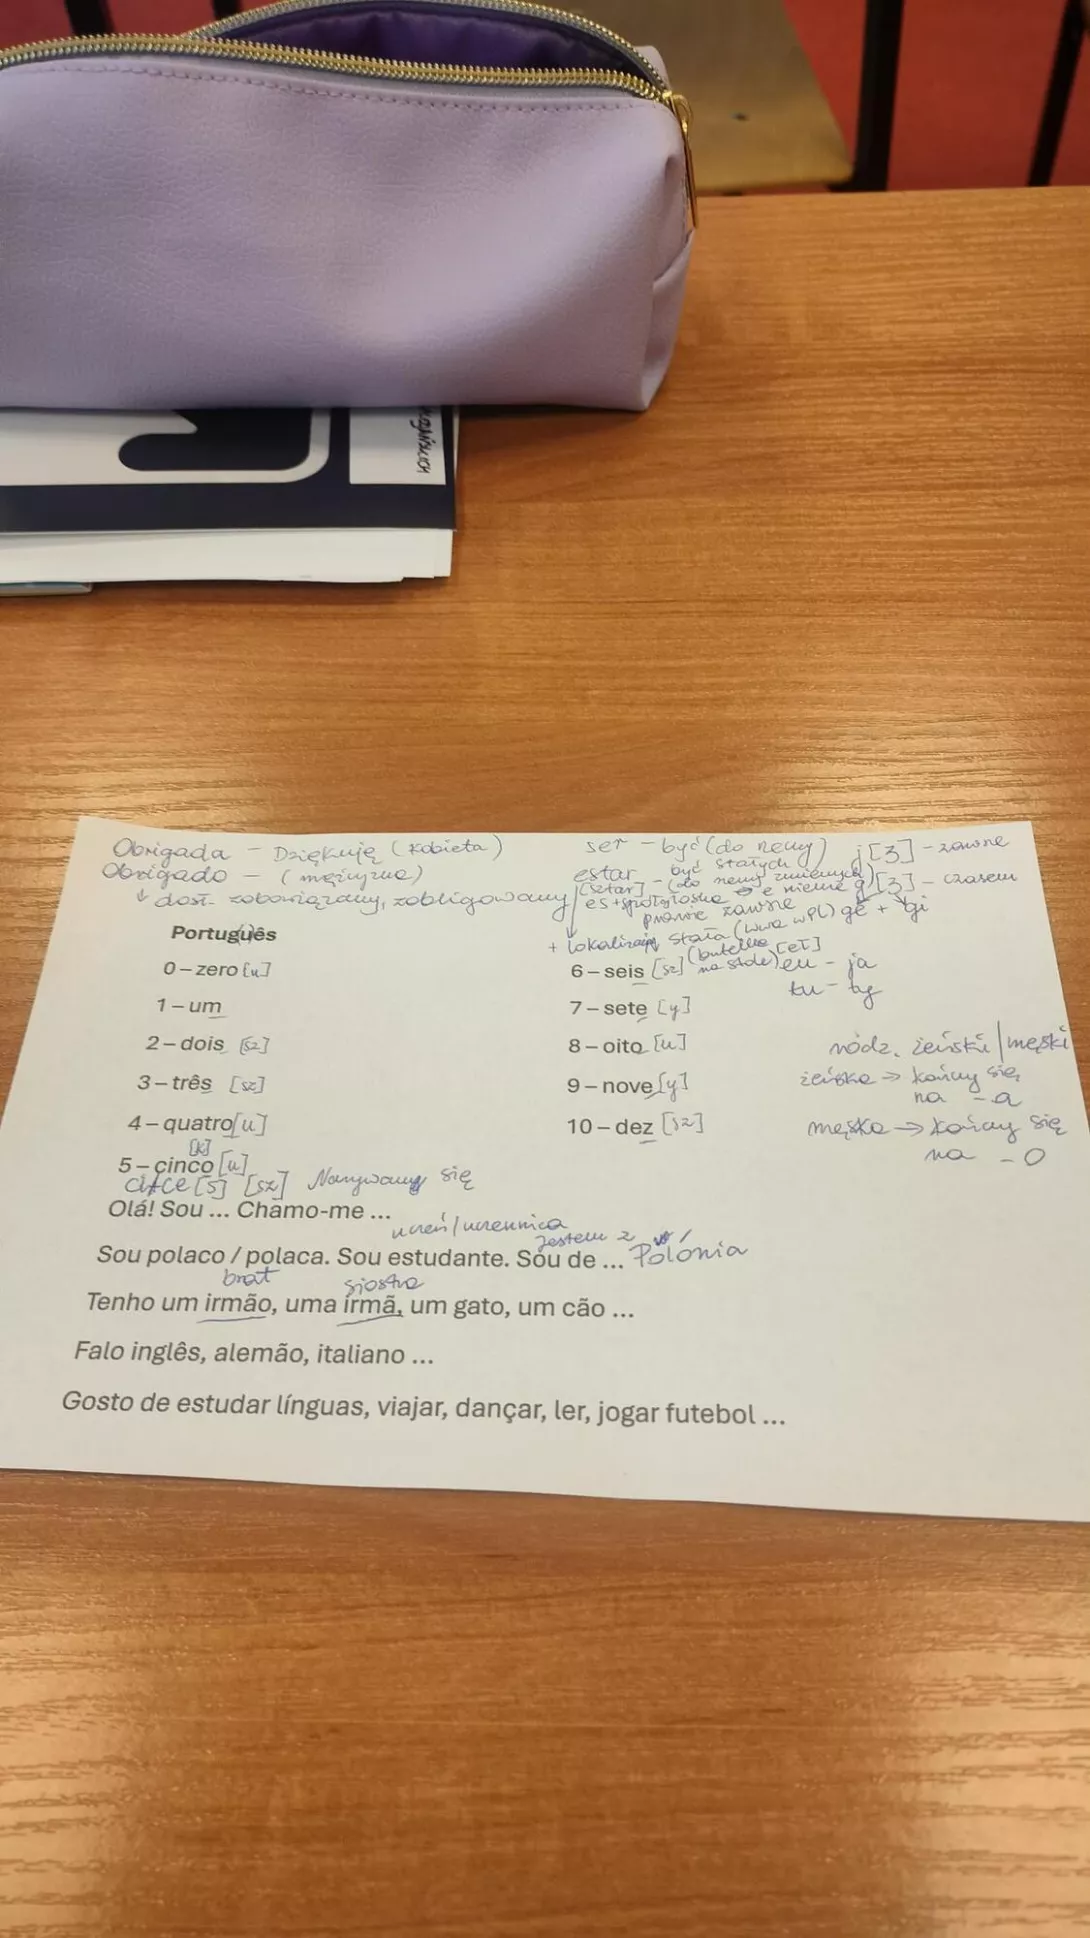 Obrigada – Dziękuję (kobieta)
Obrigado – (mężczyzna)
↓ dosł. zobowiązany, zobligowany
ser – być (do rzeczy stałych)
estar – być (do rzeczy zmiennych)
[sztar]
es + spółgłoska → e nieme
prawie zawsze
+ lokalizacja stała (wwa w PL)
(butelka na stole)
j [ʒ] – zawsze
g [ʒ] – czasem
ge + gi
[eł]
eu – ja
tu – ty
Português
0 – zero [u]
1 – um
2 – dois [sz]
3 – três [sz]
4 – quatro [u]
[k]
5 – cinco [u]
6 – seis [sz]
7 – sete [y]
8 – oito [u]
9 – nove [y]
10 – dez [sz]
rodz. żeński / męski
żeńska → kończy się
na – a
męska → kończy się
na – o
[s] [sz] Nazywam się
Olá! Sou ... Chamo-me ...
uczeń / uczennica
Jestem z
Sou polaco / polaca. Sou estudante. Sou de ... Polónia
brat siostra
Tenho um irmão, uma irmã, um gato, um cão ...
Falo inglês, alemão, italiano ...
Gosto de estudar línguas, viajar, dançar, ler, jogar futebol ...